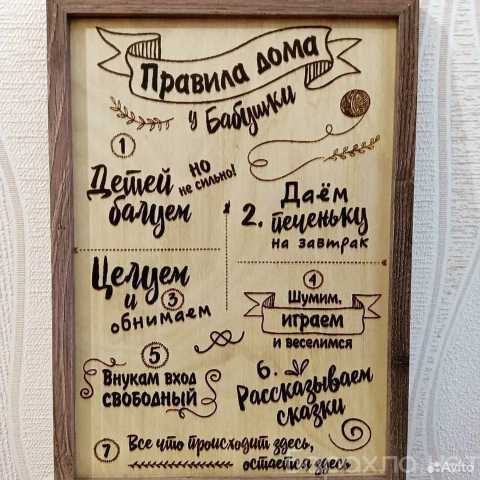 Правила дома
у Бабушки
1
Детей но
не сильно!
балуем
2. Даём
печеньку
на завтрак
Целуем
и 3
обнимаем
4
Шумим,
играем
и веселимся
5
Внукам вход
свободный
6.
Рассказываем
сказки
7 Все что происходит здесь,
остается здесь
Avito